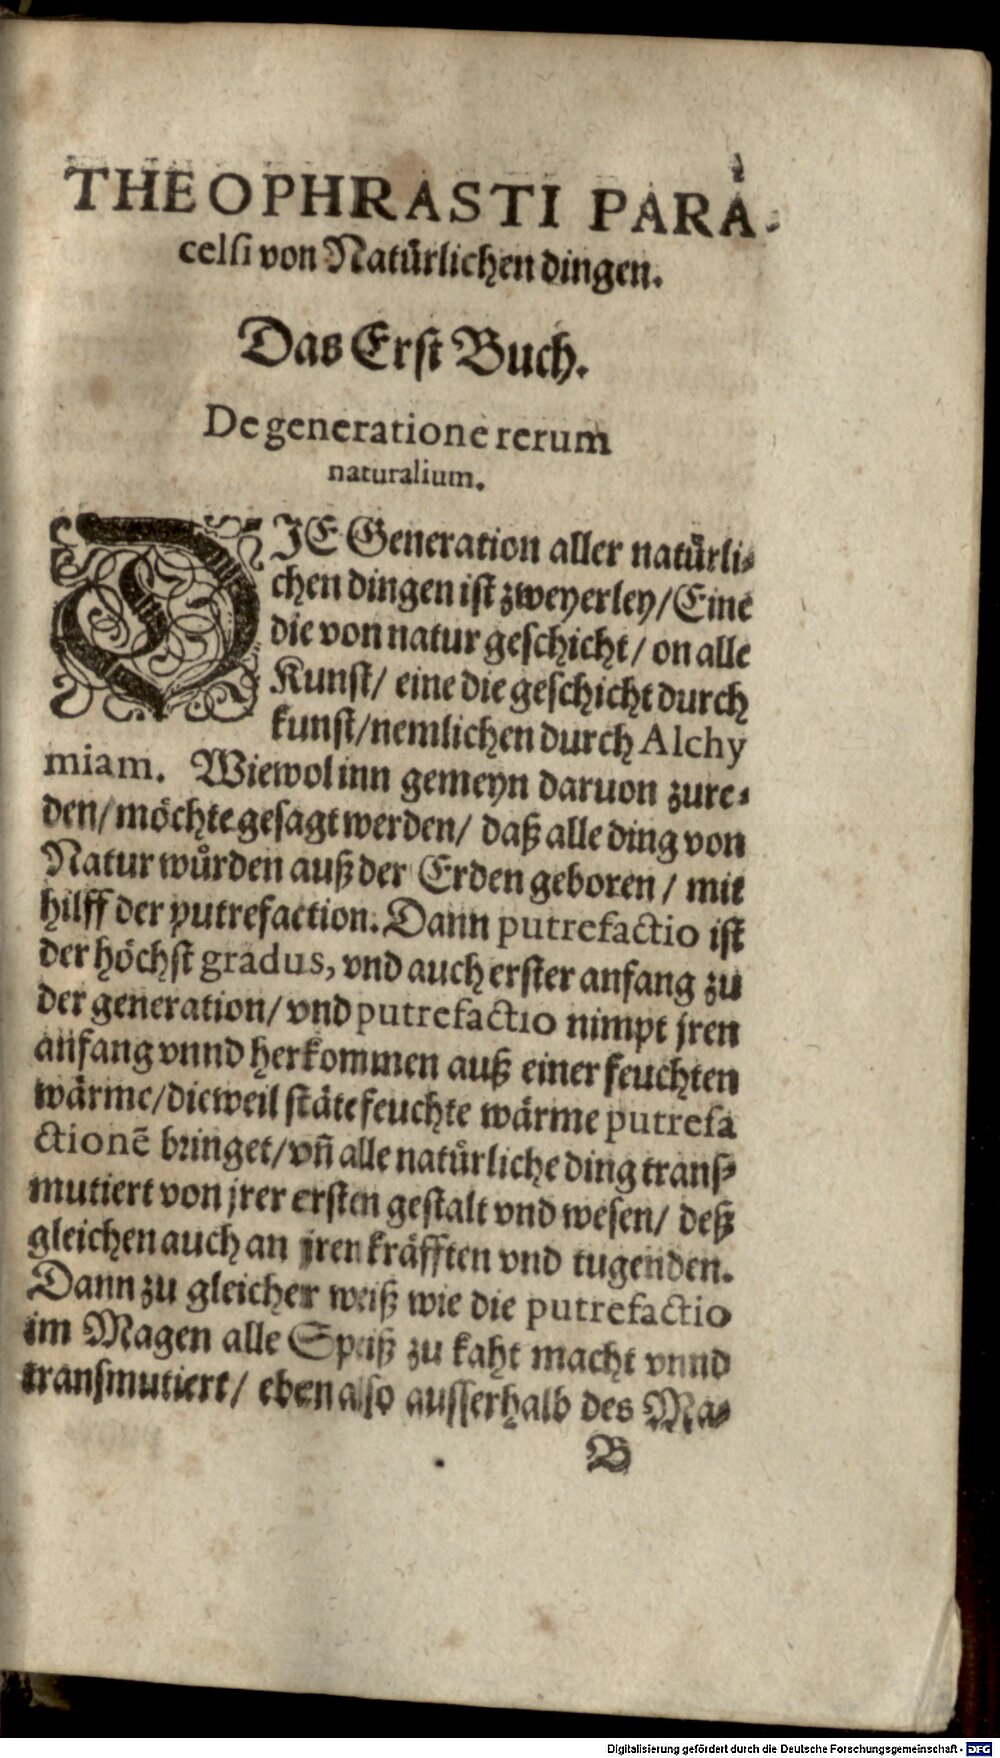 THEOPHRASTI PARA-
celſi von Natürlichen dingen.
Das Erſt Buch.
De generatione rerum
naturalium.
DIE Generation aller natürli-
chen dingen iſt zweyerley/ Eine
die von natur geſchicht/ on alle
Kunſt/ eine die geſchicht durch
kunſt/ nemlichen durch Alchy
miam. Wiewol inn gemeyn daruon zure-
den/ möchte geſagt werden/ daß alle ding von
Natur wuͤrden auß der Erden geboren/ mit
hilff der putrefaction. Dann putrefactio iſt
der höchſt gradus, vnd auch erſter anfang zu
der generation/ vnd putrefactio nimpt jren
anfang vnnd herkommen auß einer feuchten
wärme/ dieweil ſtäte feuchte wärme putrefa
ctionẽ bringet/ vñ alle natürliche ding tranſ-
mutiert von jrer erſten geſtalt vnd weſen/ deß
gleichen auch an jren kräfften vnd tugenden.
Dann zu gleicher weiß wie die putrefactio
im Magen alle Speiß zu kaht macht vnnd
tranſmutiert/ eben alſo auſſerhalb des Ma-
B
Digitalisierung gefördert durch die Deutsche Forschungsgemeinschaft - DFG